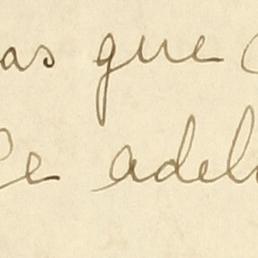 as que
e adel